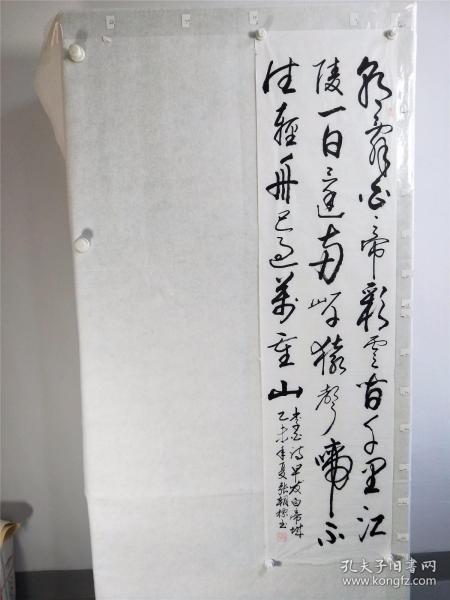 朝辭白帝彩雲間千里江
陵一日還兩岸猿聲啼不
住輕舟已過萬重山
李白詩早發白帝城
乙未年夏張朝書
孔夫子旧书网
www.kongfz.com